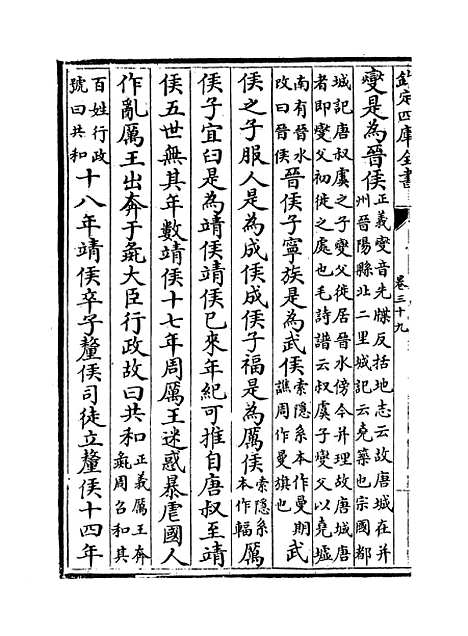 欽定四庫全書
卷三十九
燮是為晉侯正義燮音先牒反括地志云故唐城在并州晉陽縣北二里城記云堯築也宗國都
城記唐叔虞之子燮父徙居晉水傍今并理故唐城唐者即燮父初徙之處也毛詩譜云叔虞子燮父以堯墟
南有晉水改曰晉侯晉侯子寧族是為武侯索隱系本作曼期譙周作曼旗也武
侯之子服人是為成侯成侯子福是為厲侯索隱系本作輻厲
侯子宜臼是為靖侯靖侯已來年紀可推自唐叔至靖
侯五世無其年數靖侯十七年周厲王迷惑暴虐國人
作亂厲王出奔于彘大臣行政故曰共和正義厲王奔彘周召和其
百姓行政號曰共和十八年靖侯卒子釐侯司徒立釐侯十四年